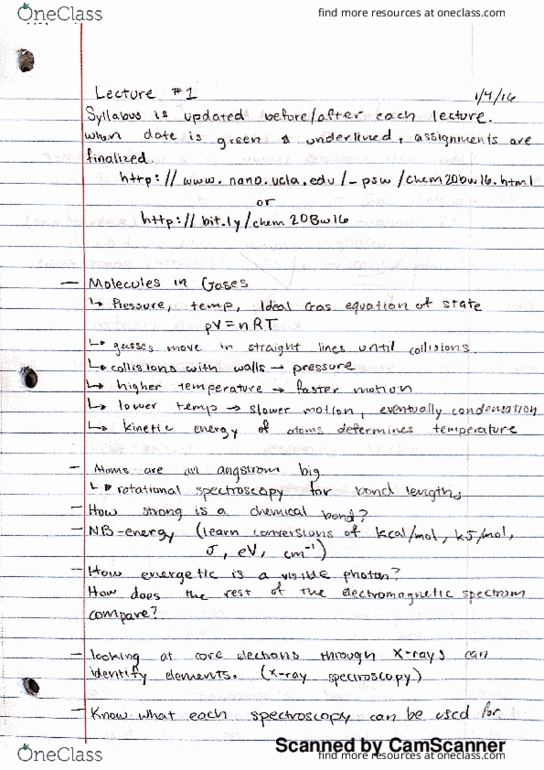 OneClass
find more resources at oneclass.com
Lecture #1
1/4/16
Syllabus is updated before/after each lecture.
when date is green & underlined, assignments are
finalized.
http://www.nano.ucla.edu/~psw/chem20bw16.html
or
http://bit.ly/chem20Bw16
– Molecules in Gases
↳ Pressure, temp, Ideal Gas equation of state
PV=nRT
↳ gasses move in straight lines until collisions.
↳ collisions with walls → pressure
↳ higher temperature → faster motion
↳ lower temp → slower motion, eventually condensation
↳ kinetic energy of atoms determines temperature
– Atoms are an angstrom big
↳ rotational spectroscopy for bond lengths
– How strong is a chemical bond?
– NB-energy (learn conversions of kcal/mol, kJ/mol,
J, eV, cm⁻¹)
– How energetic is a visible photon?
How does the rest of the electromagnetic spectrum
compare?
– looking at core electrons through X-rays can
identify elements. (x-ray spectroscopy)
– Know what each spectroscopy can be used for.
Scanned by CamScanner
OneClass
find more resources at oneclass.com